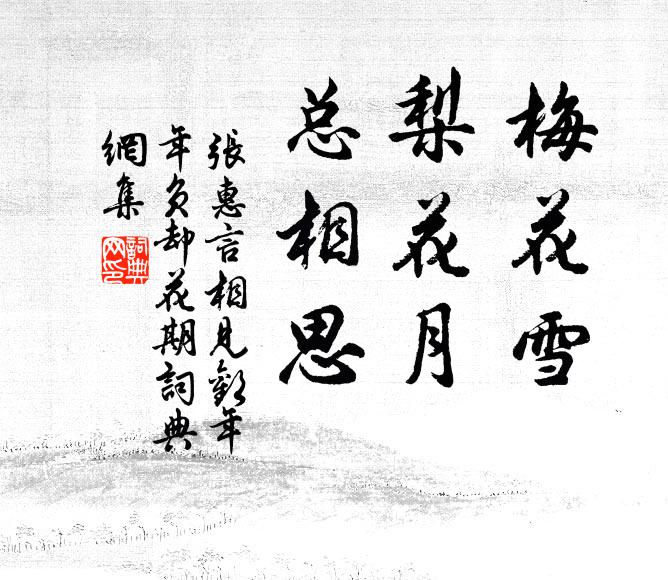 梅花雪
梨花月
总相思
張惠言相見歡年
年负却花期詞典
網集
詞典
网印